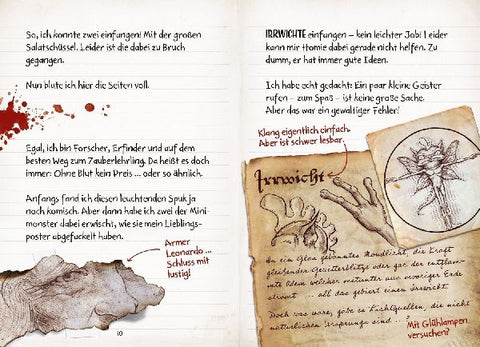 So, ich konnte zwei einfangen! Mit der großen
Salatschüssel. Leider ist die dabei zu Bruch
gegangen.
Nun blute ich hier die Seiten voll.
Egal, ich bin Forscher, Erfinder und auf dem
besten Weg zum Zauberlehrling. Da heißt es doch
immer: Ohne Blut kein Preis ... oder so ähnlich.
Anfangs fand ich diesen leuchtenden Spuk ja
noch komisch. Aber dann habe ich zwei der Mini-
monster dabei erwischt, wie sie mein Lieblings-
poster abgefuckelt haben.
Armer
Leonardo ...
Schluss mit
lustig!
10
IRRWICHTE einfangen – kein leichter Job! Leider
kann mir Homie dabei gerade nicht helfen. Zu
dumm, er hat immer gute Ideen.
Ich habe echt gedacht: Ein paar kleine Geister
rufen – zum Spaß – ist keine große Sache.
Aber das war ein gewaltiger Fehler!
Klang eigentlich einfach.
Aber ist schwer lesbar.
Irrwicht
In ein Glas gebanntes Mondlicht, die Kraft
gleißender Gewitterblitze oder gar der entflamm-
te Odem welcher mitunter aus mooriger Erde
strömt ... all das gebiert einen Irrwicht.
Doch was wäre, gäbe es Lichtquellen, die nicht
natürlichen Ursprungs sind ...?
Mit Glühlampen
versuchen?